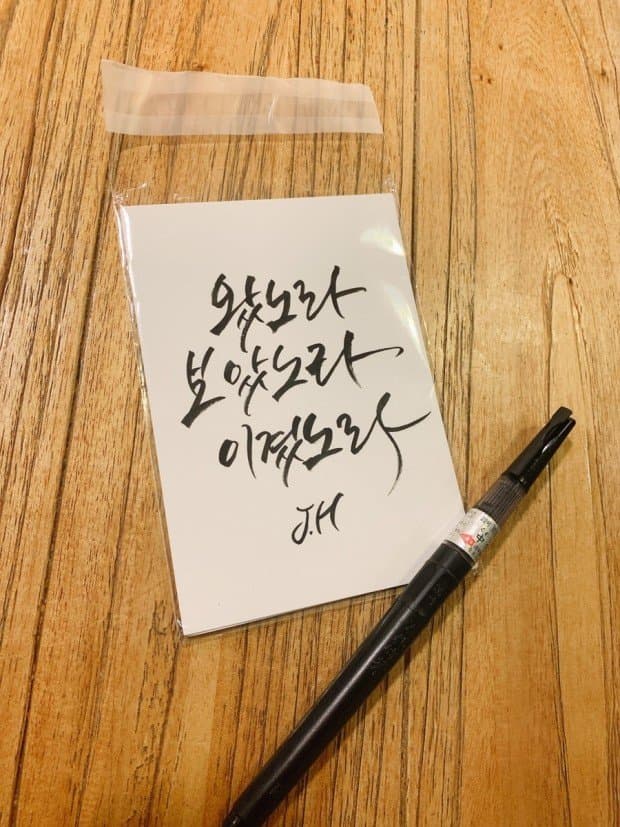 왔노라
보았노라
이겼노라
J.H